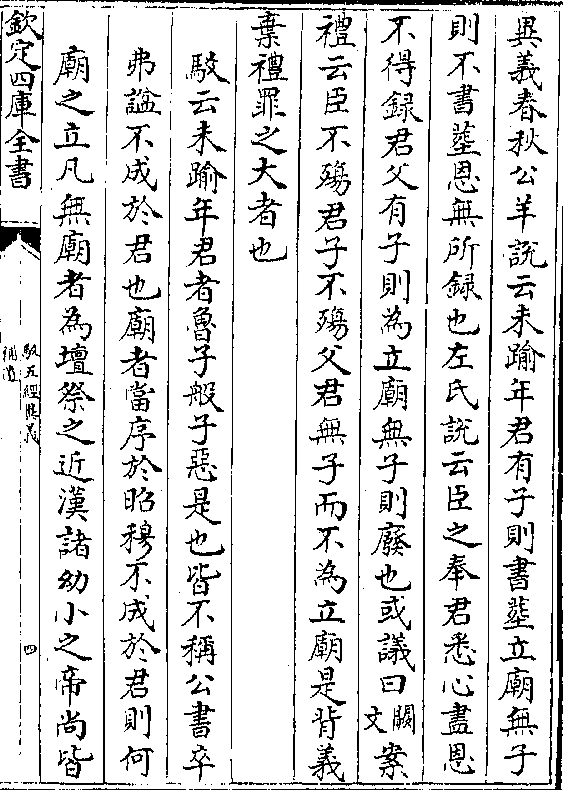 異義春秋公羊說云未踰年君有子則書塟立廟無子
則不書塟恩無所録也左氏說云臣之奉君悉心盡恩
不得録君父有子則為立廟無子則廢也或議曰闕文案
禮云臣不殤君子不殤父君無子而不為立廟是背義
棄禮罪之大者也
駮云未踰年君者魯子般子惡是也皆不稱公書卒
弗諡不成於君也廟者當序於昭穆不成於君則何
廟之立凡無廟者為壇祭之近漢諸幼小之帝尚皆
欽定四庫全書
駁五經異義
補遺
四